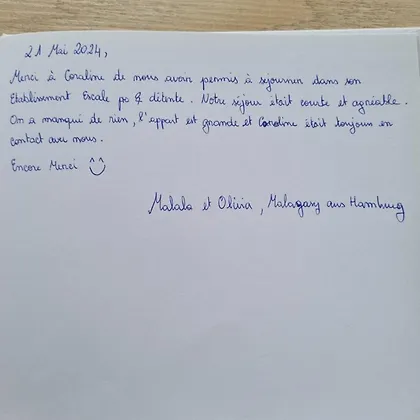 21 Mai 2024,
Merci à Coraline de nous avoir permis à sejourner dans son
Etablissement Escale po & détente. Notre séjour était courte et agréable.
On a manqué de rien, l'appart est grande et Coraline était toujours en
contact avec nous.
Encore Merci
Malala et Olivia, Malagasy aus Hamburg